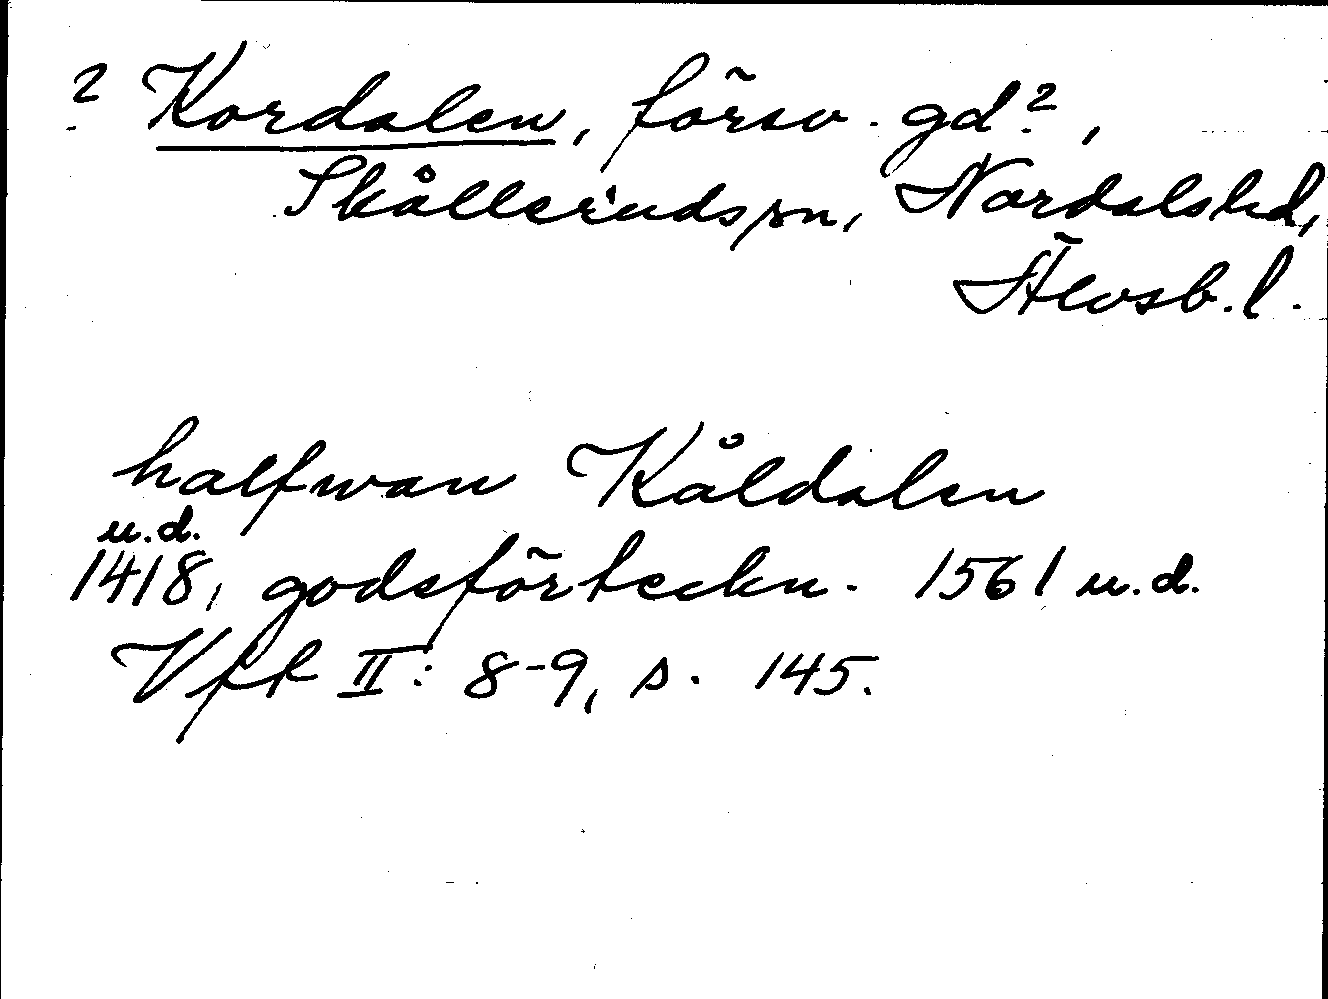 ? Kordalen, försv. gd?,
Skållerudssn, Nordalshd,
Älvsb. l.
halfwan Kåldalen
u.d.
1418, godsförteckn. 1561 u.d.
Vfr II: 8-9, s. 145.